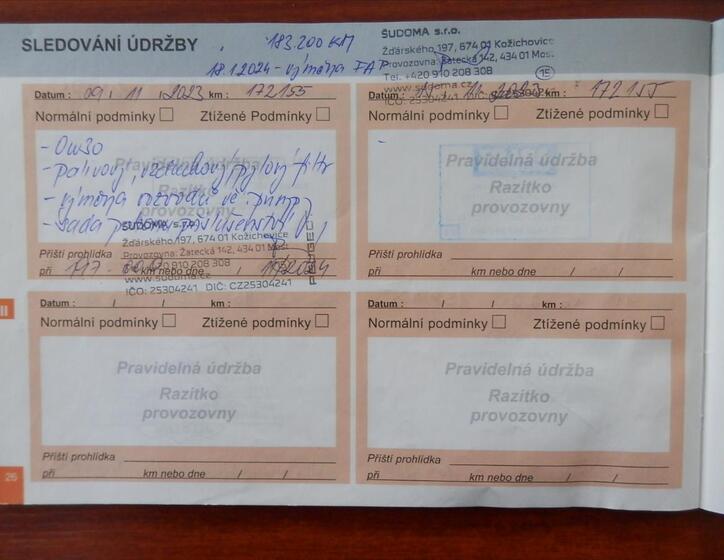 SLEDOVÁNÍ ÚDRŽBY
183.200 KM
18.1.2024 - výměna FAP
ŠUDOMA s.r.o.
Žďárského 197, 674 01 Kožichovice
Provozovna: Žatecká 142, 434 01 Most
Tel. +420 910 208 308
15
www.sudoma.cz
IČO: 25304241 DIČ: CZ25304241
Datum : 09 / 11 / 2023 km : 172155
Normální podmínky Ztížené podmínky
- 0W30
- palivový, vzduchový, pylový filtr
- výměna rozvodů vč. pumpy
- sada příslušenství
Pravidelná údržba
Razítko
provozovny
ŠUDOMA s.r.o.
Žďárského 197, 674 01 Kožichovice
Provozovna: Žatecká 142, 434 01 Most
Tel. +420 910 208 308
www.sudoma.cz
IČO: 25304241 DIČ: CZ25304241
Příští prohlídka
při km nebo dne 11/2024
Datum : 2023 km : 172155
Normální podmínky Ztížené podmínky
-
Pravidelná údržba
Razítko
provozovny
Příští prohlídka
při km nebo dne / /
Datum : / / km :
Normální podmínky Ztížené podmínky
Pravidelná údržba
Razítko
provozovny
Příští prohlídka
při km nebo dne / /
Datum : / / km :
Normální podmínky Ztížené podmínky
Pravidelná údržba
Razítko
provozovny
Příští prohlídka
při km nebo dne / /
26